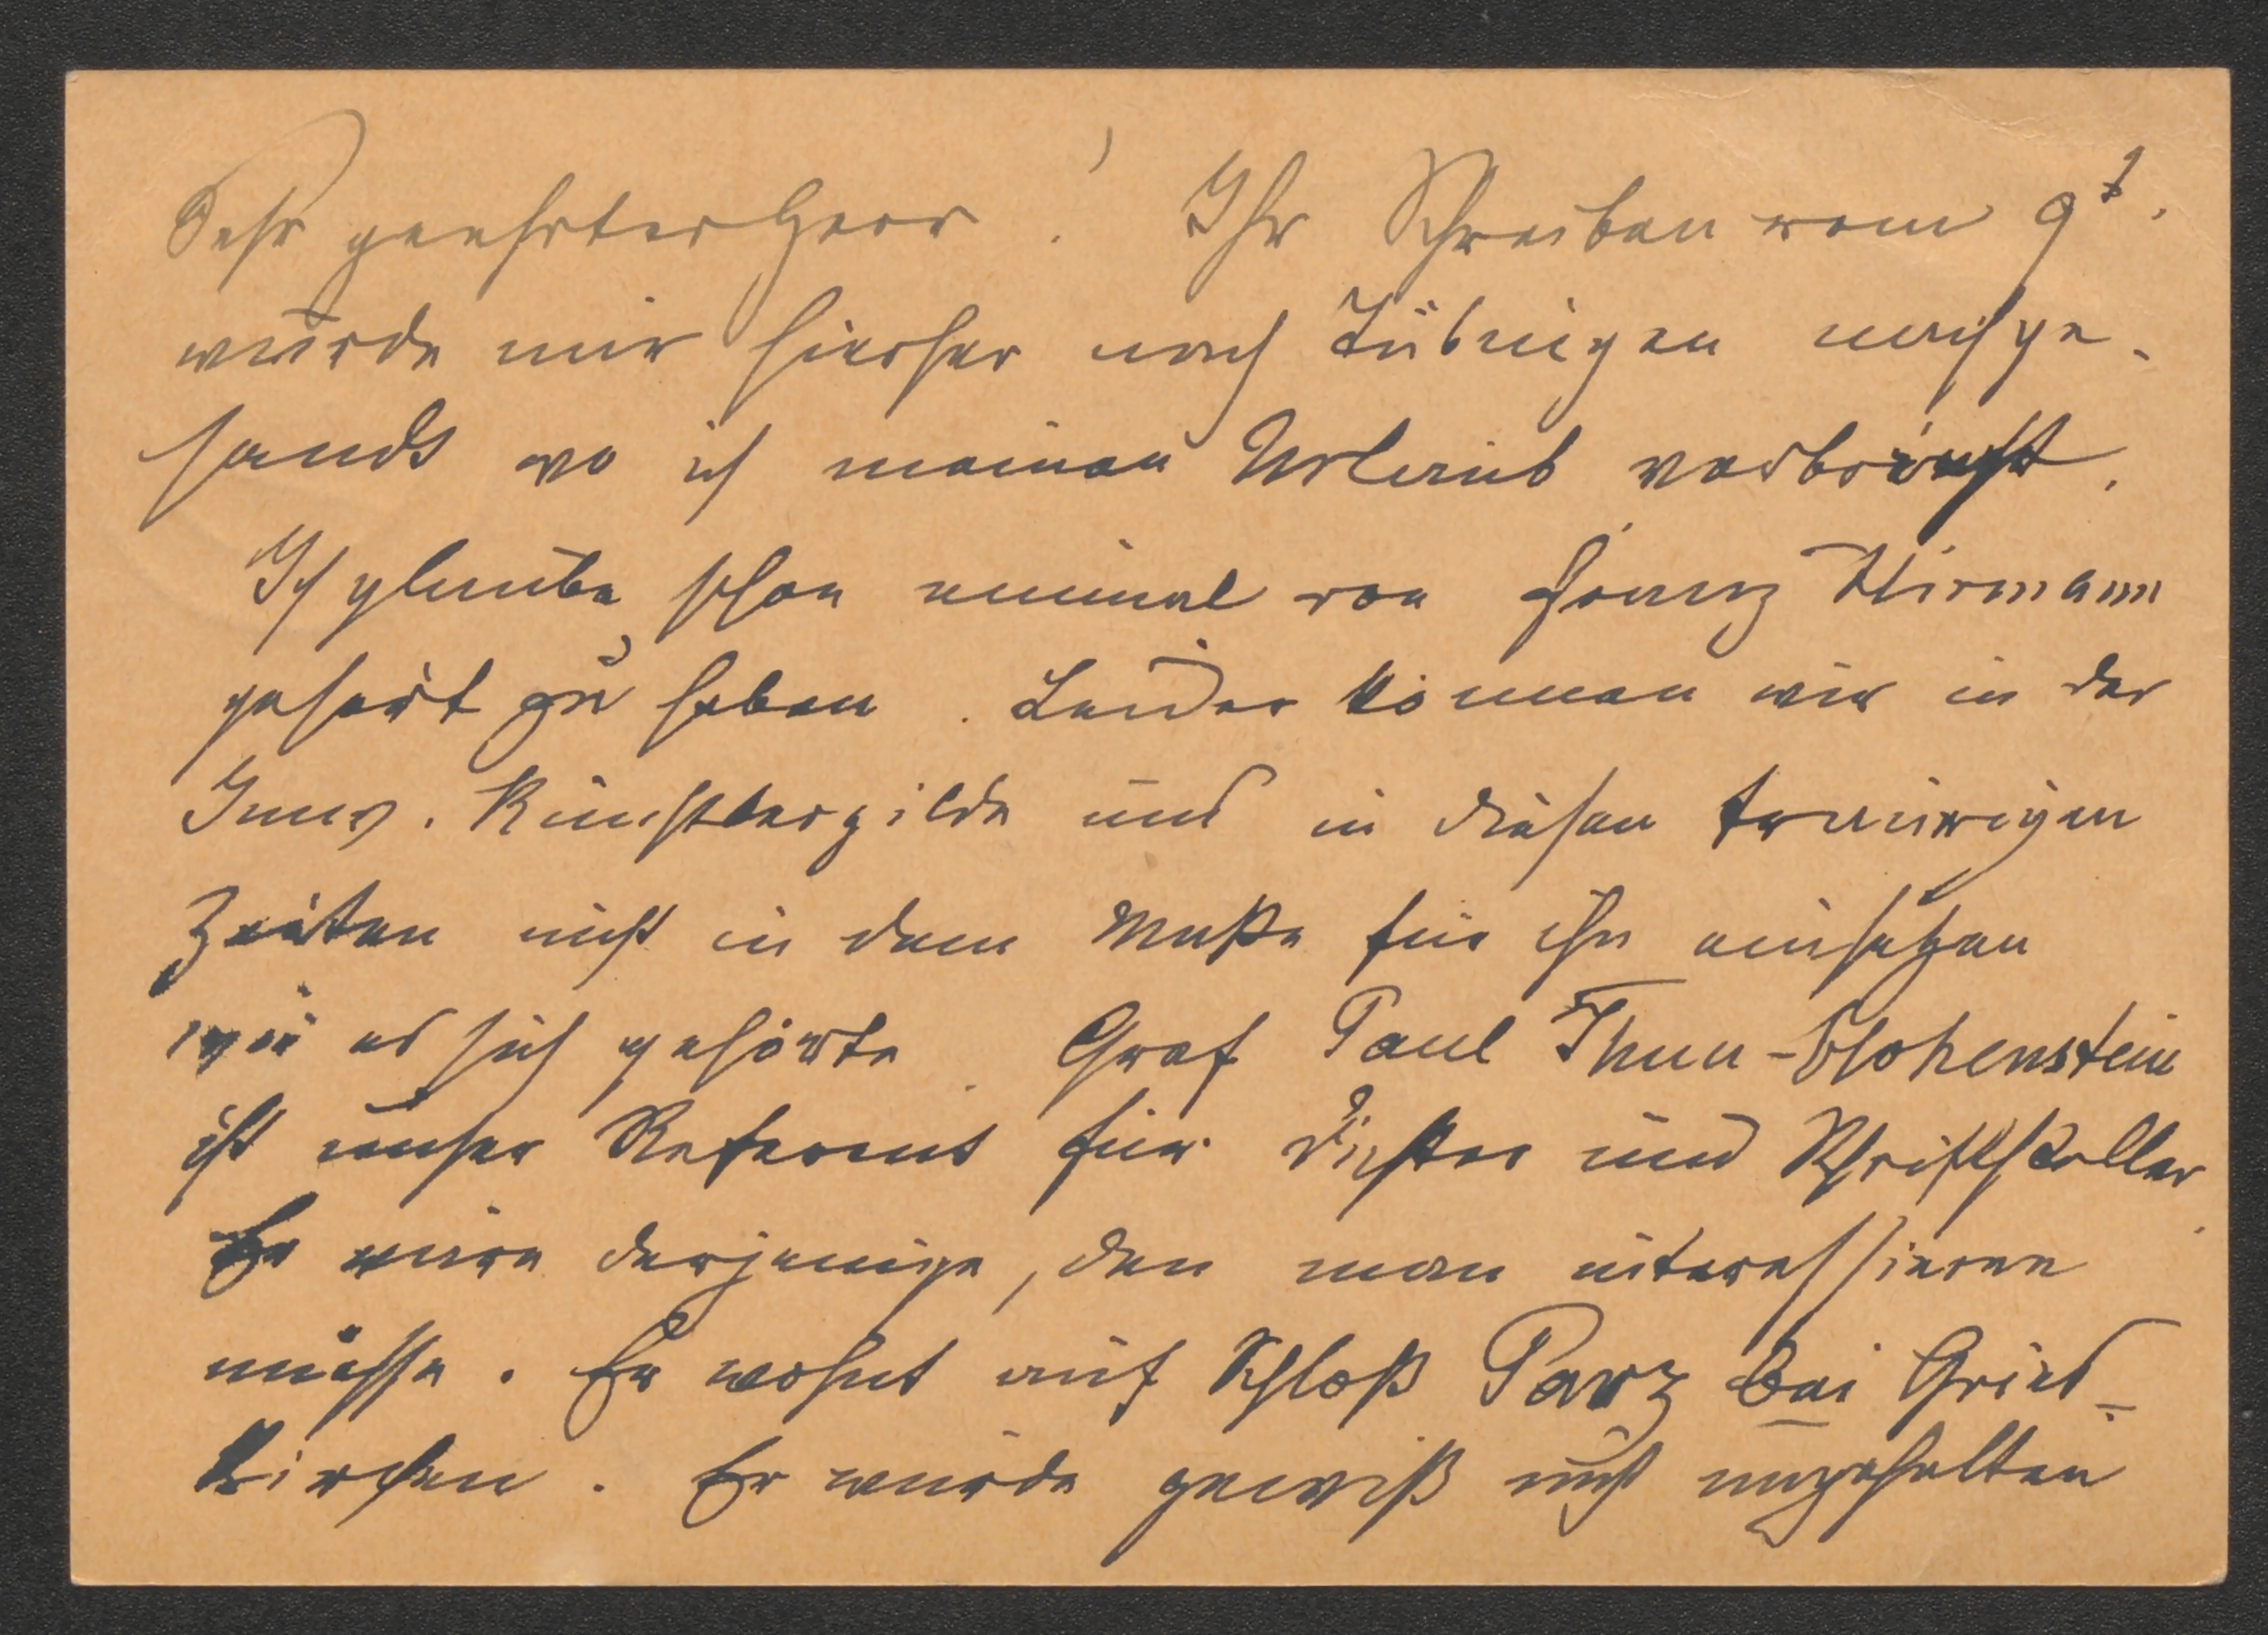 Sehr geehrter Herr! Ihr Schreiben vom 9t.
wurde mir hierher nach Tübingen nachge-
sandt wo ich meinen Urlaub verbracht.
Ich glaube schon einmal von Franz
gehört zu haben. Leider können wir in der
Innv. Künstlergilde und in diesen traurigen
Zeiten nicht in dem Maße für ihn einsetzen
wie es sich gehörte. Graf Paul Thun-Hohenstein
ist unser Referent für Dichter und Schriftsteller.
Er wäre derjenige, den man interessieren
müsse. Er wohnt auf Schloß Parz bei Gries-
kirchen. Er würde gewiß nicht ungehalten